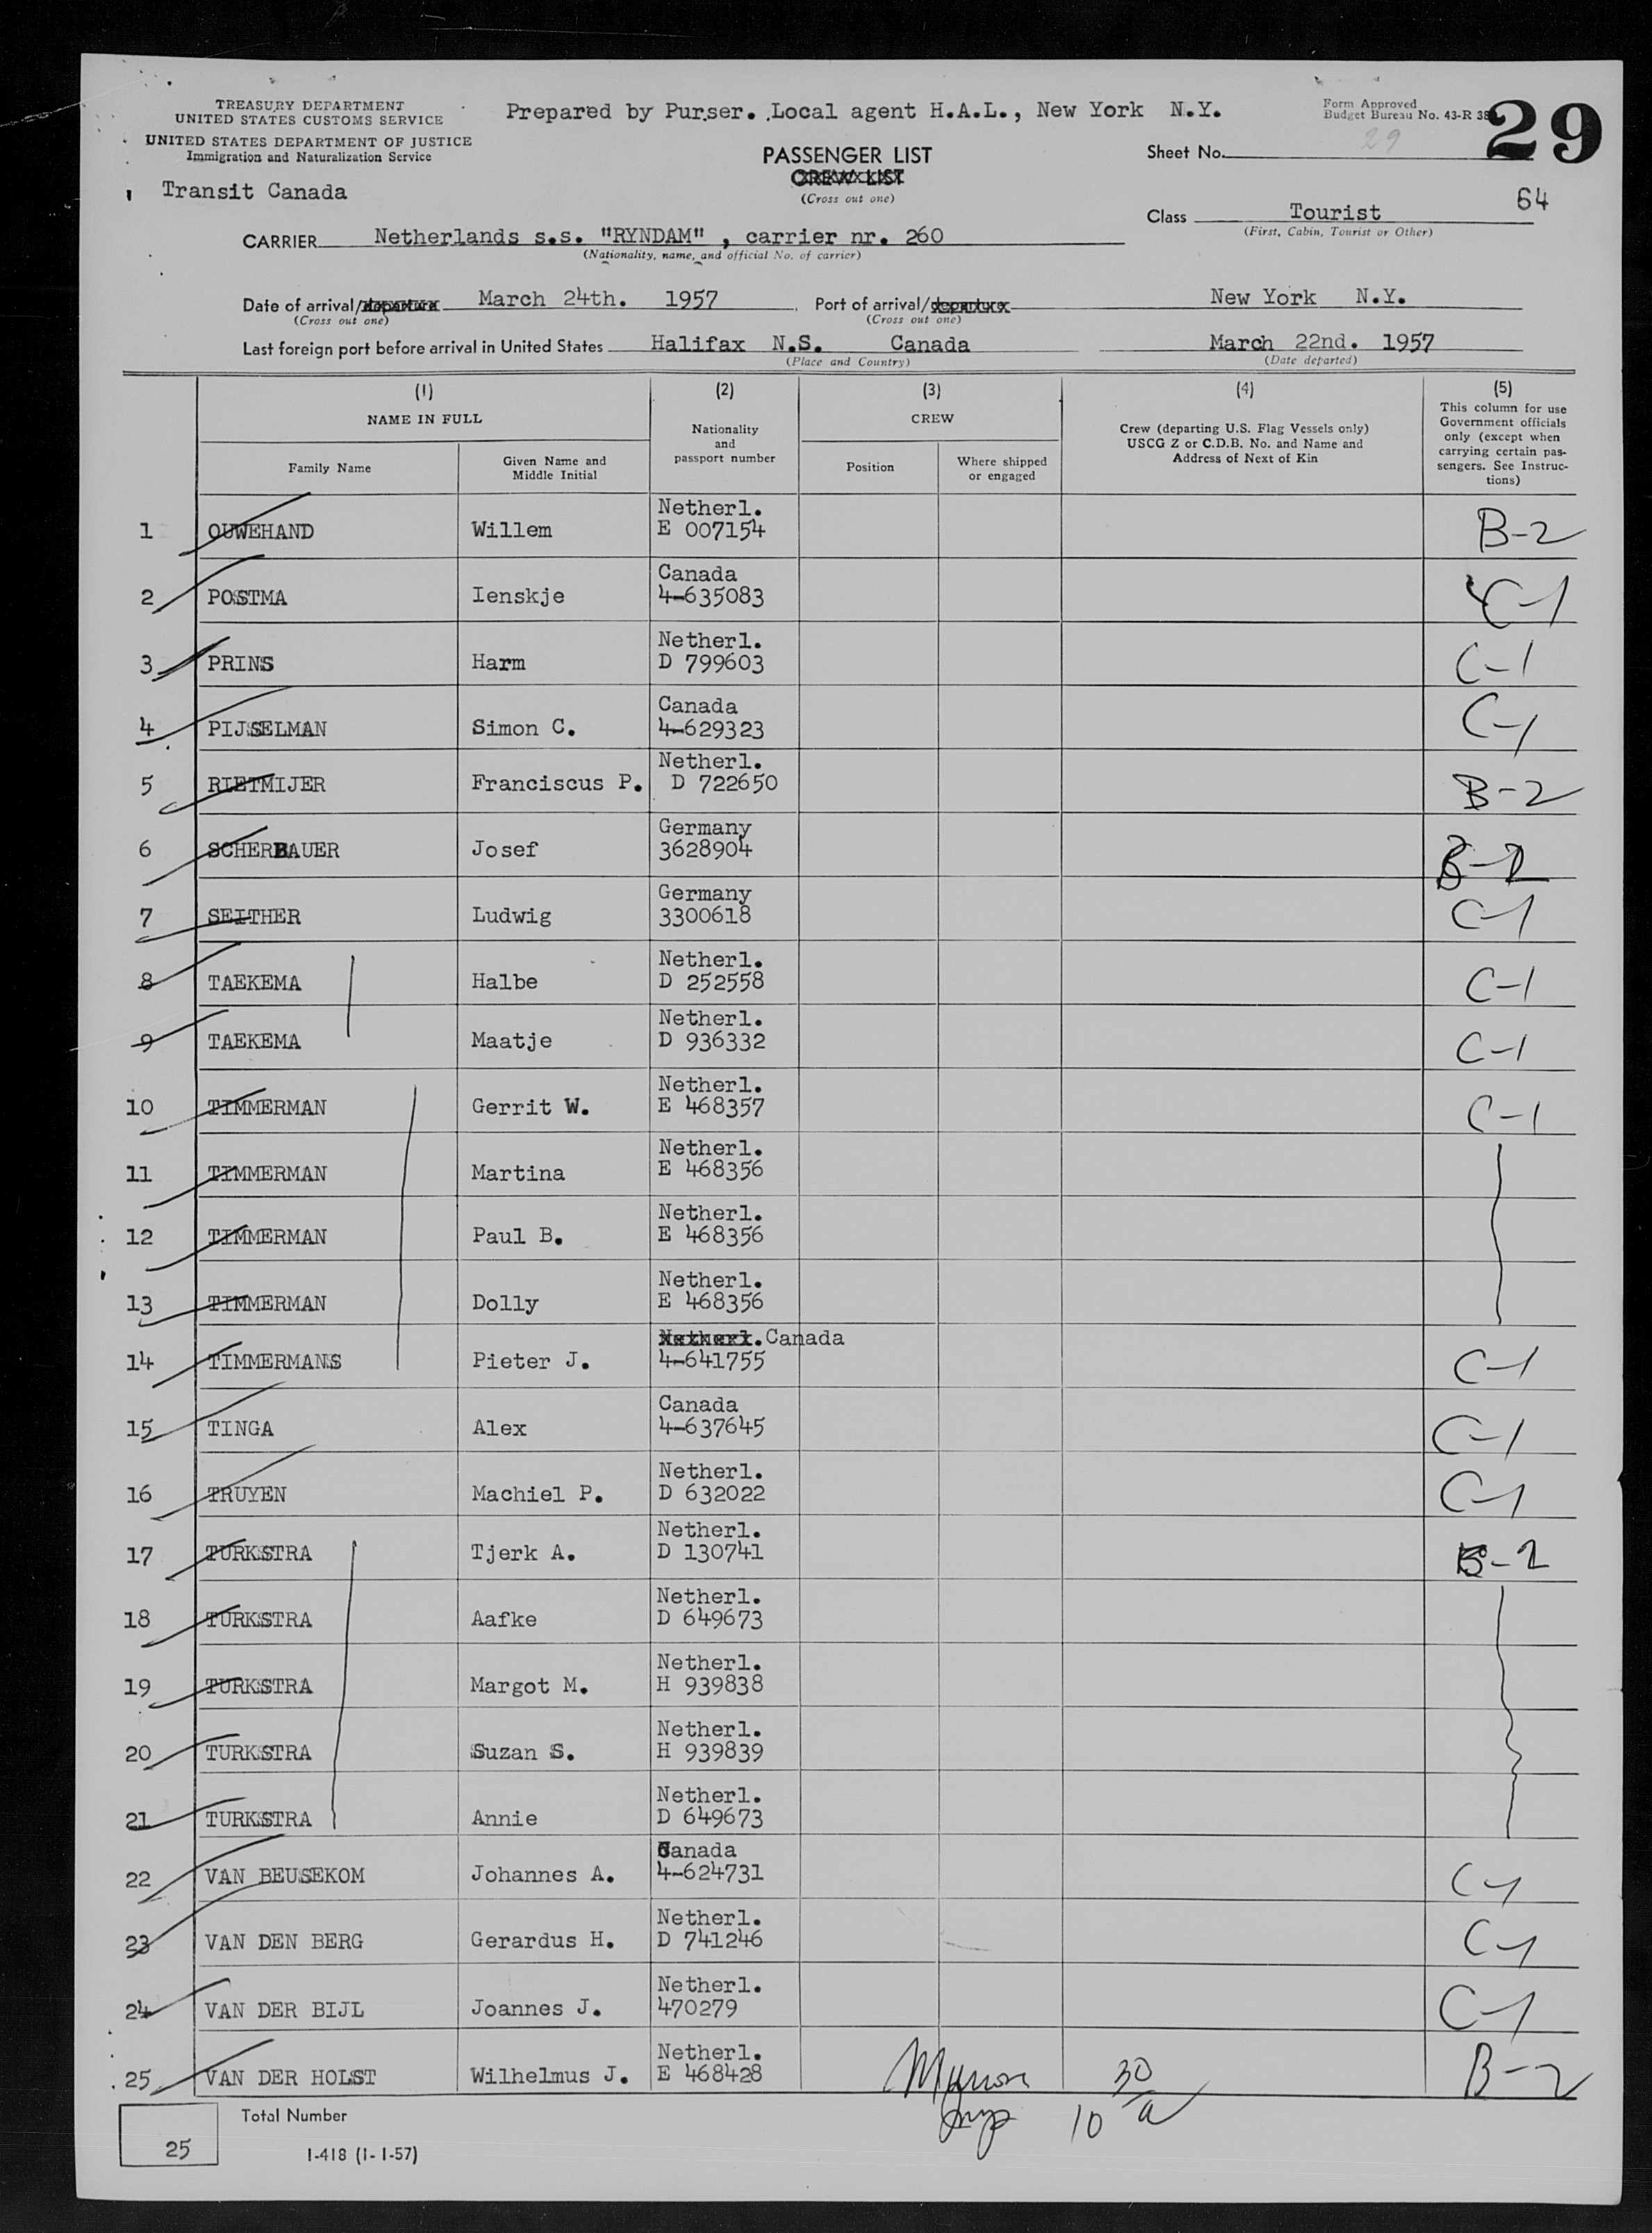 TREASURY DEPARTMENT
UNITED STATES CUSTOMS SERVICE
UNITED STATES DEPARTMENT OF JUSTICE
Immigration and Naturalization Service
Transit Canada
Prepared by Purser. Local agent H.A.L., New York N.Y.
PASSENGER LIST
CREW LIST
(Cross out one)
Form Approved
Budget Bureau No. 43-R
29
Sheet No. 29
64
Class Tourist
(First, Cabin, Tourist or Other)
CARRIER Netherlands s.s. "RYNDAM" , carrier nr. 260
(Nationality, name, and official No. of carrier)
Date of arrival/departure March 24th. 1957 Port of arrival/departure New York N.Y.
(Cross out one) (Cross out one)
Last foreign port before arrival in United States Halifax N.S. Canada March 22nd. 1957
(Place and Country) (Date departed)
(1) (2) (3) (4) (5)
NAME IN FULL
Family Name
Given Name and
Middle Initial
Nationality
and
passport number
CREW
Position
Where shipped
or engaged
Crew (departing U.S. Flag Vessels only)
USCG Z or C.D.B. No. and Name and
Address of Next of Kin
This column for use
Government officials
only (except when
carrying certain pas-
sengers. See Instruc-
tions)
Netherl.
1 OUWEHAND Willem E 007154 B-2
Canada
2 POSTMA Ienskje 4-635083 C-1
Netherl.
3 PRINS Harm D 799603 C-1
Canada
4 PIJSELMAN Simon C. 4-629323 C-1
Netherl.
5 RIETMIJER Franciscus P. D 722650 B-2
Germany
6 SCHERBAUER Josef 3628904 B-2
Germany
7 SEITHER Ludwig 3300618 C-1
Netherl.
8 TAEKEMA Halbe D 252558 C-1
Netherl.
9 TAEKEMA Maatje D 936332 C-1
Netherl.
10 TIMMERMAN Gerrit W. E 468357 C-1
Netherl.
11 TIMMERMAN Martina E 468356
Netherl.
12 TIMMERMAN Paul B. E 468356
Netherl.
13 TIMMERMAN Dolly E 468356
Netherl. Canada
14 TIMMERMANS Pieter J. 4-641755 C-1
Canada
15 TINGA Alex 4-637645 C-1
Netherl.
16 TRUYEN Machiel P. D 632022 C-1
Netherl.
17 TURKSTRA Tjerk A. D 130741 B-2
Netherl.
18 TURKSTRA Aafke D 649673
Netherl.
19 TURKSTRA Margot M. H 939838
Netherl.
20 TURKSTRA Suzan S. H 939839
Netherl.
21 TURKSTRA Annie D 649673
Canada
22 VAN BEUSEKOM Johannes A. 4-624731 C-1
Netherl.
23 VAN DEN BERG Gerardus H. D 741246 C-1
Netherl.
24 VAN DER BIJL Joannes J. 470279 C-1
Netherl.
25 VAN DER HOLST Wilhelmus J. E 468428 B-2
10 30/a
Total Number
25
I-418 (1-1-57)